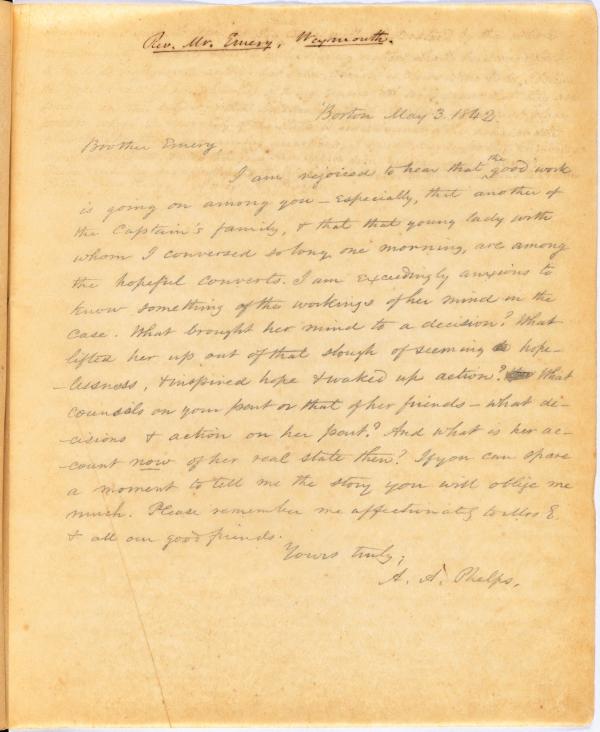 Rev. Mr. Emery, Weymouth.
Boston May 3. 1842.
Brother Emery,
I am rejoiced to hear that the good work
is going on among you - Especially, that another of
the Captain's family, & that that young lady with
whom I conversed so long one morning, are among
the hopeful converts. I am exceedingly anxious to
know something of the workings of her mind in the
case. What brought her mind to a decision? What
lifted her up out of that slough of seeming hope-
-lessness, & inspired hope & waked up action? What
counsels on your part or that of her friends - what de-
-cisions & action on her part? And what is her ac-
-count now of her real state then? If you can spare
a moment to tell me the story you will oblige me
much. Please remember me affectionately to Mrs E.
& all our good friends.
Yours truly,
A. A. Phelps.